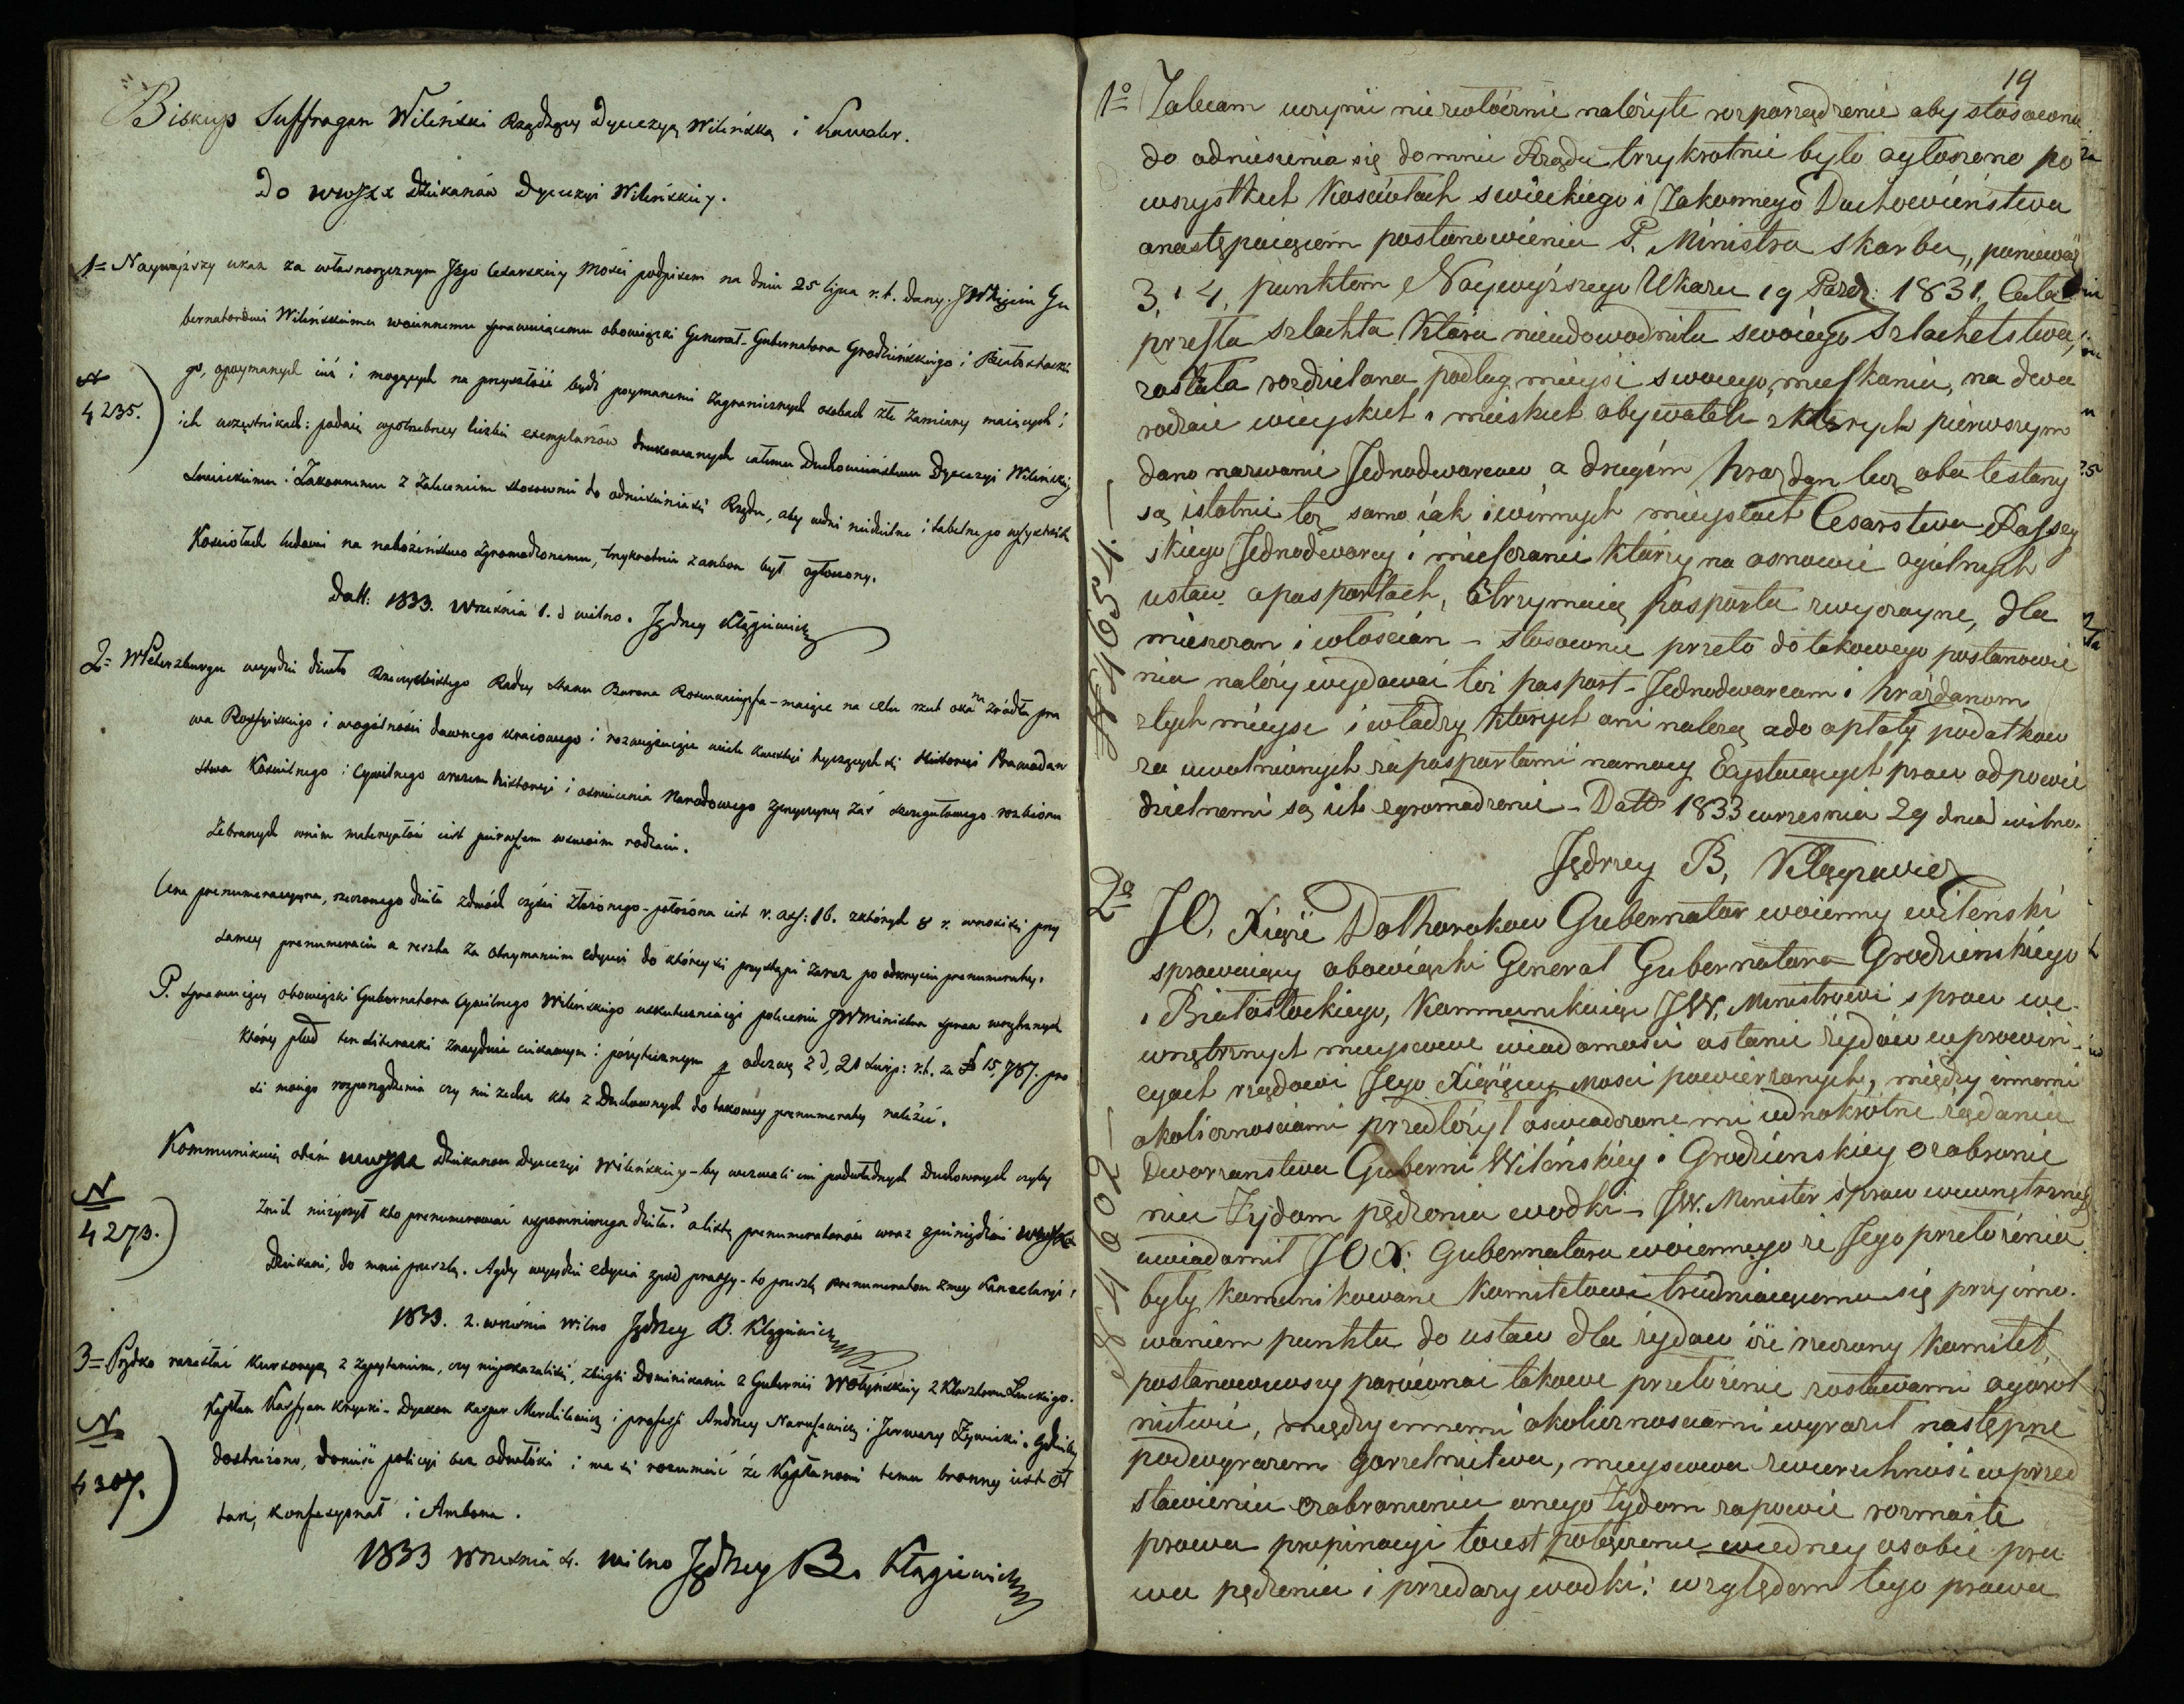 Biskup Suffragan Wileński Rządzący Dyecezyą Wileńską i Kawaler.
Do WWJXX Dziekanów Dyecezyi Wileńskiey.
1= Naywyższy ukaz za własnoręcznym Jego Cesarskiey Mości podpisem na dniu 25 lipca r.t. dany. JW Xięciu Gu
bernatorowi Wileńskiemu woiennemu sprawuiącemu obowiązki Generał-Gubernatora Grodzieńskiego i Białostockie
go, o poymanych iuż i mogących na przyszłość bydź poymanemi zagranicznych osobach złe zamiary maiących i
N 4235.
ich uczęstnikach: podaię w potrzebney liczbie exemplarzów drukowanych całemu Duchowieństwu Dyecezyi Wileńskiey
Swieckiemu i Zakonnemu z zaleceniem stosownie do odniesienia się Rządu, aby w dni niedzielne i tabelne po wszystkich
Kościołach ludowi na nabożeństwo zgromadzonemu, trzykrotnie z ambon był ogłoszony.
Datt: 1833. Września 1. d Wilno. Jędrzey Kłągiewicz
2= W Petersburgu wyydzie dzieło Rzeczywistego Radcy Stanu Barona Rosenkampfa - maiące na celu rzut oka na źródła pra
wa Rossyiskiego i w ogólności dawnego kraiowego i rozwiązuiące wiele kwestyi tyczących się Historyi Prawodaw
stwa Kościelnego i Cywilnego oraz historyi i oświecenia Narodowego z przyczyny zaś szczegułowego rozbioru
zebranych w nim materyałów iest pierwszem w swoim rodzaiu.
Cena prenumeracyyna, rzeczonego dzieła z dwóch części złożonego - położona iest r. ass: 16. z których 8 r. wnosi się przy
samey prenumeracie a reszta za otrzymaniem edycyi do którey się przystąpi zaraz po odkryciu prenumeraty.
P. Sprawuiący obowiązki Gubernatora Cywilnego Wileńskiego uskuteczniaiąc polecenie JW Ministra Spraw wewnętrznych
który płód ten literacki znayduie ciekawym i pożytecznym p odezwę z d, 21 Sierp: r.t. za N 15,787. pro
si moiego rozporządzenia czy nie zechce kto z Duchownych do takowey prenumeraty należeć.
Kommunikuię o tém WWJXX Dziekanom Dyecezyi Wileńskiey - by wezwali im podwładnych Duchownych czyby
N 4273.
z nich nieżyczył kto prenumerować wspomnionego dzieła? a listę prenumeratorów wraz z pieniędzmi WWJXX
Dziekani, do mnie przeszlą. A gdy wyydzie edycia z pod prassy - to przeszlę prenumeratom z mey Kancelaryi,
1833. 2. września Wilno Jędrzey B. Kłągiewicz
3= Prędko rozesłać kursoryą z zapytaniem, czy niepokazali się, zbiegli Dominikanie z Gubernii Wołyńskiey z Klasztoru Łuckiego.
Kapłan Kassyan - Dyakon Kasper i professi Andrzey Naruszewicz i Jerwazy Żywicki. Gdzieby
N 4307.
dostrzeżono, donieść policyi bez odwłóki i ma się rozumieć że Kapłanowi temu bronny iest oł
tarz, konfessyonał i Ambona.
1833 Września 4. Wilno Jędrzey B. Kłągiewicz
19
1o Zalecam uczynić niezwłócznie należyte rozporządzenie aby stosownie
do odniesienia się do mnie Rządu trzykrotnie było ogłoszono po
wszystkich Kosciołach swieckiego i Zakonnego Duchowieństwa
o następuiącém postanowieniu P. Ministra Skarbu, ponieważ
3, i 4, punktem Naywyższego Ukazu 19 Pazdz: 1831. Cała
przeszła szlachta Która nieudowodniła swoiego Szlachetstwa,
została rozdzielona podług mieysc swoiego mieszkania, na dwa
rodzaie wieyskich i mieyskich obywateli z których pierwszym
dano nazwanie Jednodworców a drugim hrażdan lecz oba te stany
są istotnie toż samo iak i w innych mieyscach Cesarstwa Rossyy
skiego Jednodworcy i mieszczanie Którzy na osnowie ogólnych
N 4654.
ustaw o pasportach, otrzymuią pasporta zwyczayne, dla
mieszczan i włoscian - Stosownie przeto do takowego postanowie
nia należy wydawać też pasport - Jednodworcom i hrażdanom
z tych mieysc i władzy których oni należą a do opłaty podatkow
za uwolnionych za pasportami na mocy Exystuiących praw odpowie
dzielnemi są ich zgromadzenie - Datt 1833 wrzesnia 29 dnia wilno.
Jędrzey B, Kłągiewicz
2o JO. Xiąże Dołhorukow Gubernator woienny wileński
sprawuiący obowiązki Generał Gubernatora Grodzieńskiego
i Białostockiego, kommunikuiąc JW. Ministrowi spraw we-
wnętrznych mieyscowe wiadomości o stanie żydów w prowin-
cyach rządowi Jego Xiążęcey Mosci powierzonych, między innemi
okolicznosciami przedłożył oswiadczone mu iednokrotne żądania
N 4602
Dworzanstwa Guberni Wileńskiey i Grodzienskiey o zabronie
nie Żydom pędzenia wodki - JW. Minister spraw wewnętrznych
uwiadomił JOX. Gubernatora woiennego że Jego przełożenia
były kommunikowane Komitetowi trudniącemu się przyimo-
waniem punktu do ustaw dla żydow iże rzeczony Komitet
postanowiwszy porównać takowe przełożenie z ustawami o gorzel
nictwie, między innemi okolicznosciami wyraził następne
pod wyrazem gorzelnictwa, mieyscowa zwierzchność w przed
stawieniu o zabronieniu onego Żydom zapowie rozmaite
prawa propinacyi to iest połączenie w iedney osobie pra
wa pędzenia i przedaży wodki: względem tego prawa